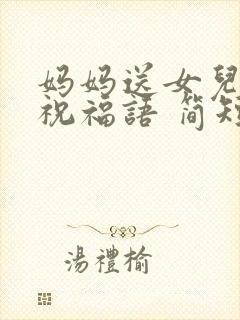 妈妈送女兒
祝福語 简短
湯禮榆